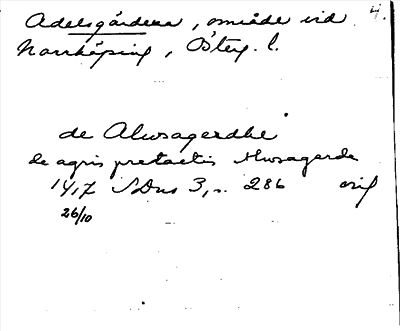 Adelsgårdena, område vid 4.
Norrköping, Österg. l.
de Alwsagerdhe
de agris pretactis Alwsagarde
1417 SDns 3, s. 286 orig
26/10